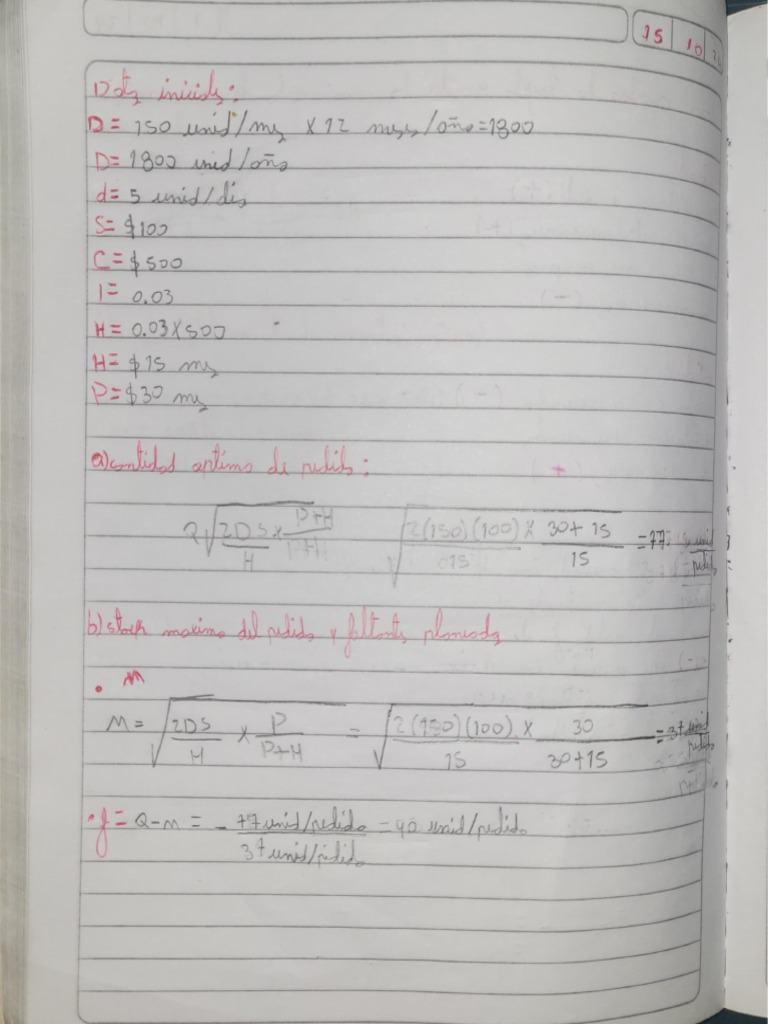 15 10
Datos iniciales:
D = 150 unid/mes x 12 meses/año = 1800
D = 1800 unid/año
d = 5 unid/día
S = $100
C = $500
I = 0.03
H = 0.03 x 500
H = $15 mes
P = $30 mes
a) cantidad optima de pedido:
Q √(2DS/H x P+H/P+H) √(2(150)(100)/015 x 30+15/15) = 77 unid/pedido
b) stock maximo del pedido y faltantes planeados
• M
M = √(2DS/H x P/P+H) = √(2(150)(100)/15 x 30/30+15) = 37 unid/pedido
• f = Q-M = - 77 unid/pedido = 40 unid/pedido
37 unid/pedido